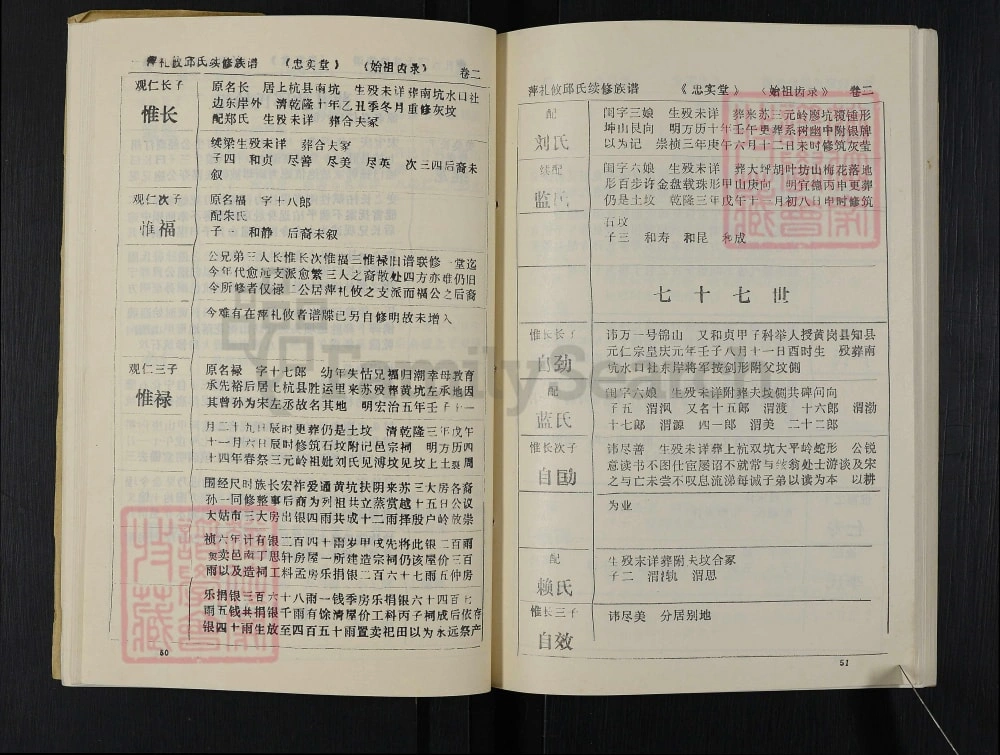 萍礼攸邱氏续修族谱 《忠实堂》 《始祖齿录》 卷二
观仁长子
惟长
原名长 居上杭县南坑 生殁未详葬南坑水口社
边东岸外 清乾隆十年乙丑季冬月重修灰坟
配郑氏 生殁未详 葬合夫冢
续梁生殁未详 葬合夫冢
子四 和贞 尽善 尽美 尽英 次三四后裔未
叙
观仁次子
惟福
原名福 字十八郎
配朱氏
子一 和静 后裔未叙
公兄弟三人长惟长次惟福三惟禄旧谱联修一堂迄
今年代愈远支派愈繁三人之裔散处四方亦难仍旧
今所修者仅禄二公居萍礼攸之支派而福公之后裔
今难有在萍礼攸者谱牒已另自修明故未增入
观仁三子
惟禄
原名禄 字十七郎 幼年失怙兄福归潮幸母教育
承先裕后居上杭县胜运里来苏殁葬黄坑左承地因
其曾孙为宋左丞故名其地 明宏治五年壬子十一
月二十九日辰时更葬仍是土坟 清乾隆三年戊午
十一月六日辰时修筑石坟附记邑宗祠 明方历四
十四年春祭三元岭祖妣刘氏见溥坟见坟上土裂周
围经尺时族长宏祚爱通黄坑扶阴来苏三大房各裔
孙一同修整事后商为列祖共立蒸赏越十五日公议
大姑市三大房出银四雨共成十二雨择殷户岭放崇
祯六年计有银二百四十雨岁甲戌先将此银二百雨
契卖邑南丁思轩房屋一所建造宗祠仍该屋价三百
雨以及造祠工料孟房乐捐银二百六十七雨五仲房
乐捐银三百六十八雨一钱季房乐捐银六十四百七
雨五钱共捐银千雨有馀清屋价工料丙子祠成后依存
银四十雨生放至四百五十雨置卖祀田以为永远祭产
50
萍礼攸邱氏续修族谱 《忠实堂》 《始祖齿录》 卷二
配
刘氏
闺字三娘 生殁未详 葬来苏三元岭廖坑覆锺形
坤山艮向 明方历十年壬午更葬系树幽中附银牌
以为记 崇祯三年庚午六月十二日未时修筑灰茔
续配
蓝氏
闺字六娘 生殁未详 葬大坪胡叶坊山梅花落地
形百步许金盘载珠形甲山庚向 明宜德丙申更葬
仍是土坟 乾隆三年戊午十二月初八日申时修筑
石坟
子三 和寿 和昆 和成
七十七世
惟长长子
自劲
讳万一号锦山 又和贞甲子科举人授黄岗县知县
元仁宗皇庆元年壬子八月十一日酉时生 殁葬南
坑水口社东岸将军按剑形附父坟侧
配
蓝氏
闺字六娘 生殁未详附葬夫坟侧共碑问向
子五 渭沨 又名十五郎 渭渡 十六郎 渭渤
十七郎 渭源 四一郎 渭美 二十二郎
惟长次子
自励
讳尽善 生殁未详葬上杭双坑大平岭蛇形 公锐
意读书不图仕宦屡诏不就常与 翁处士游谈及宋
之与亡未尝不叹息流涕每诫子弟以读为本 以耕
为业
配
赖氏
生殁未详葬附夫坟合冢
子二 渭轨 渭思
惟长三子
自效
讳尽美 分居别地
51
FamilySearch